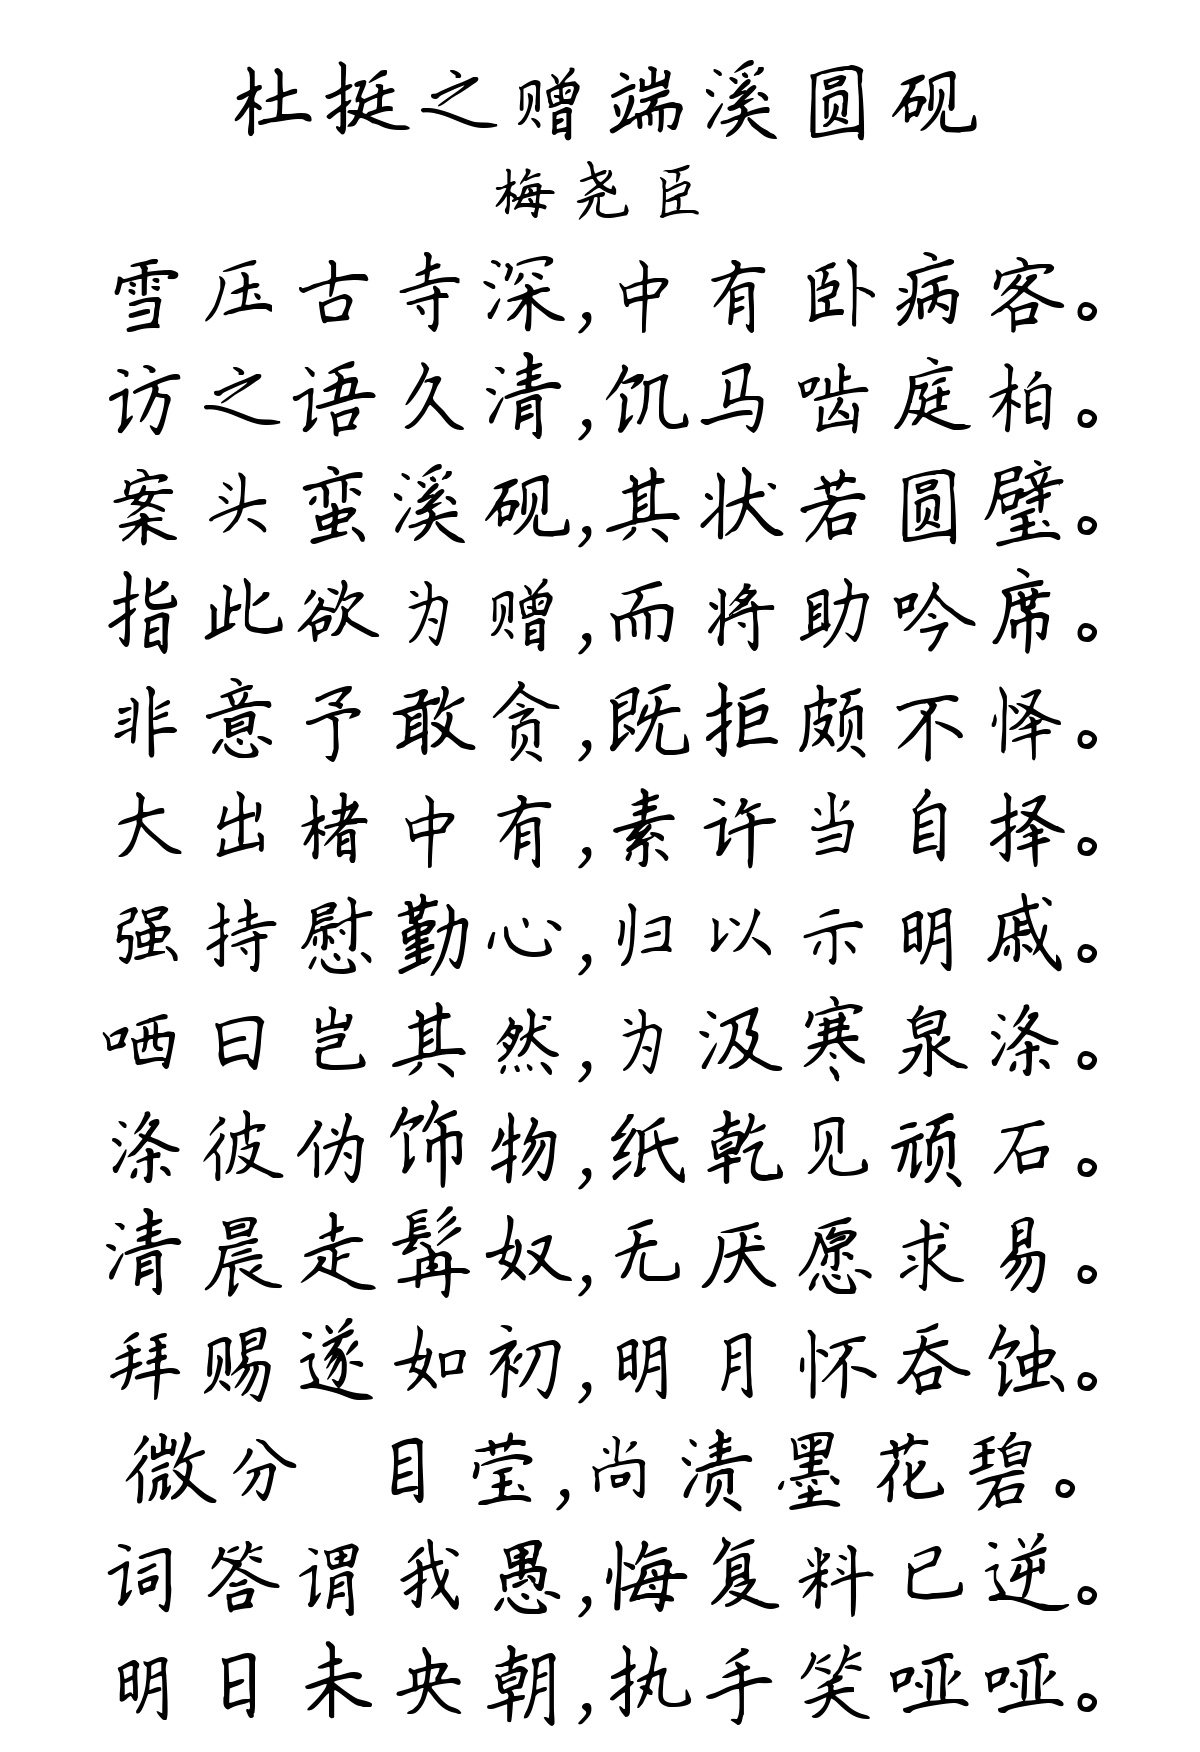 杜挺之赠端溪圆砚
梅尧臣
雪压古寺深,中有卧病客。
访之语久清,饥马啮庭柏。
案头蛮溪砚,其状若圆璧。
指此欲为赠,而将助吟席。
非意予敢贪,既拒颇不怿。
大出楮中有,素许当自择。
强持慰勤心,归以示明戚。
哂曰岂其然,为汲寒泉涤。
涤彼伪饰物,纸乾见顽石。
清晨走髯奴,无厌愿求易。
拜赐遂如初,明月怀吞蚀。
微分 目莹,尚渍墨花碧。
词答谓我愚,悔复料已逆。
明日未央朝,执手笑哑哑。